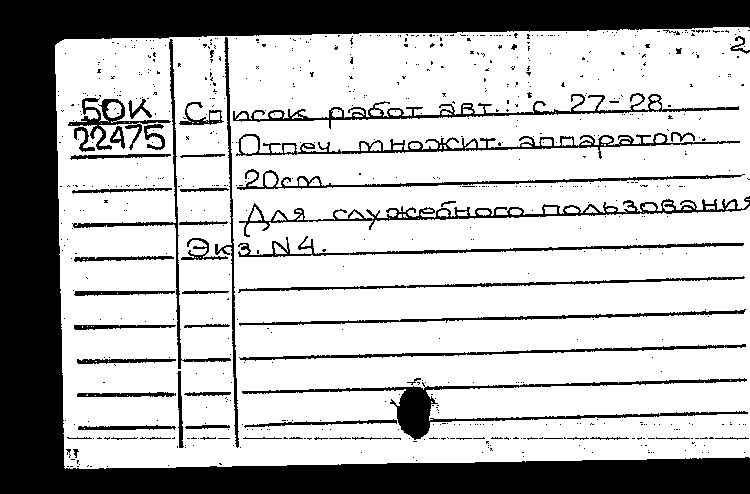 2
БОК Список работ авт.: с. 27-28.
22475 Отпеч. множит. аппаратом.
20см.
Для служебного пользования
Экз. N4.